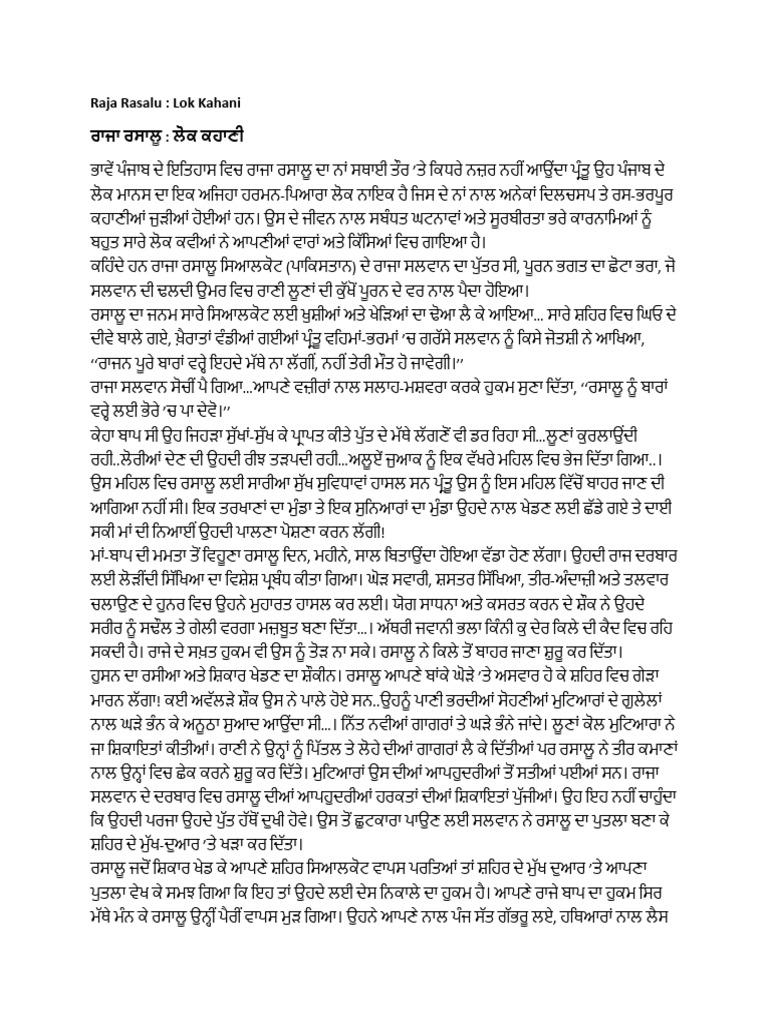 Raja Rasalu : Lok Kahani
ਰਾਜਾ ਰਸਾਲੂ : ਲੋਕ ਕਹਾਣੀ
ਭਾਵੇਂ ਪੰਜਾਬ ਦੇ ਇਤਿਹਾਸ ਵਿਚ ਰਾਜਾ ਰਸਾਲੂ ਦਾ ਨਾਂ ਸਥਾਈ ਤੌਰ ’ਤੇ ਕਿਧਰੇ ਨਜ਼ਰ ਨਹੀਂ ਆਉਂਦਾ ਪ੍ਰੰਤੂ ਉਹ ਪੰਜਾਬ ਦੇ
ਲੋਕ ਮਾਨਸ ਦਾ ਇਕ ਅਜਿਹਾ ਹਰਮਨ-ਪਿਆਰਾ ਲੋਕ ਨਾਇਕ ਹੈ ਜਿਸ ਦੇ ਨਾਂ ਨਾਲ ਅਨੇਕਾਂ ਦਿਲਚਸਪ ਤੇ ਰਸ-ਭਰਪੂਰ
ਕਹਾਣੀਆਂ ਜੁੜੀਆਂ ਹੋਈਆਂ ਹਨ। ਉਸ ਦੇ ਜੀਵਨ ਨਾਲ ਸਬੰਧਤ ਘਟਨਾਵਾਂ ਅਤੇ ਸੂਰਬੀਰਤਾ ਭਰੇ ਕਾਰਨਾਮਿਆਂ ਨੂੰ
ਬਹੁਤ ਸਾਰੇ ਲੋਕ ਕਵੀਆਂ ਨੇ ਆਪਣੀਆਂ ਵਾਰਾਂ ਅਤੇ ਕਿੱਸਿਆਂ ਵਿਚ ਗਾਇਆ ਹੈ।
ਕਹਿੰਦੇ ਹਨ ਰਾਜਾ ਰਸਾਲੂ ਸਿਆਲਕੋਟ (ਪਾਕਿਸਤਾਨ) ਦੇ ਰਾਜਾ ਸਲਵਾਨ ਦਾ ਪੁੱਤਰ ਸੀ, ਪੂਰਨ ਭਗਤ ਦਾ ਛੋਟਾ ਭਰਾ, ਜੋ
ਸਲਵਾਨ ਦੀ ਢਲਦੀ ਉਮਰ ਵਿਚ ਰਾਣੀ ਲੂਣਾਂ ਦੀ ਕੁੱਖੋਂ ਪੂਰਨ ਦੇ ਵਰ ਨਾਲ ਪੈਦਾ ਹੋਇਆ।
ਰਸਾਲੂ ਦਾ ਜਨਮ ਸਾਰੇ ਸਿਆਲਕੋਟ ਲਈ ਖੁਸ਼ੀਆਂ ਅਤੇ ਖੇੜਿਆਂ ਦਾ ਢੋਆ ਲੈ ਕੇ ਆਇਆ... ਸਾਰੇ ਸ਼ਹਿਰ ਵਿਚ ਘਿਓ ਦੇ
ਦੀਵੇ ਬਾਲੇ ਗਏ, ਖ਼ੈਰਾਤਾਂ ਵੰਡੀਆਂ ਗਈਆਂ ਪ੍ਰੰਤੂ ਵਹਿਮਾਂ-ਭਰਮਾਂ ’ਚ ਗਰੱਸੇ ਸਲਵਾਨ ਨੂੰ ਕਿਸੇ ਜੋਤਸ਼ੀ ਨੇ ਆਖਿਆ,
‘‘ਰਾਜਨ ਪੂਰੇ ਬਾਰਾਂ ਵਰ੍ਹੇ ਇਹਦੇ ਮੱਥੇ ਨਾ ਲੱਗੀਂ, ਨਹੀਂ ਤੇਰੀ ਮੌਤ ਹੋ ਜਾਵੇਗੀ।’’
ਰਾਜਾ ਸਲਵਾਨ ਸੋਚੀਂ ਪੈ ਗਿਆ...ਆਪਣੇ ਵਜ਼ੀਰਾਂ ਨਾਲ ਸਲਾਹ-ਮਸ਼ਵਰਾ ਕਰਕੇ ਹੁਕਮ ਸੁਣਾ ਦਿੱਤਾ, ‘‘ਰਸਾਲੂ ਨੂੰ ਬਾਰਾਂ
ਵਰ੍ਹੇ ਲਈ ਭੋਰੇ ’ਚ ਪਾ ਦੇਵੋ।’’
ਕੇਹਾ ਬਾਪ ਸੀ ਉਹ ਜਿਹੜਾ ਸੁੱਖਾਂ-ਸੁੱਖ ਕੇ ਪ੍ਰਾਪਤ ਕੀਤੇ ਪੁੱਤ ਦੇ ਮੱਥੇ ਲੱਗਣੋਂ ਵੀ ਡਰ ਰਿਹਾ ਸੀ...ਲੂਣਾਂ ਕੁਰਲਾਉਂਦੀ
ਰਹੀ..ਲੋਰੀਆਂ ਦੇਣ ਦੀ ਉਹਦੀ ਰੀਝ ਤੜਪਦੀ ਰਹੀ...ਅਲੂਏਂ ਜੁਆਕ ਨੂੰ ਇਕ ਵੱਖਰੇ ਮਹਿਲ ਵਿਚ ਭੇਜ ਦਿੱਤਾ ਗਿਆ..।
ਉਸ ਮਹਿਲ ਵਿਚ ਰਸਾਲੂ ਲਈ ਸਾਰੀਆ ਸੁੱਖ ਸੁਵਿਧਾਵਾਂ ਹਾਸਲ ਸਨ ਪ੍ਰੰਤੂ ਉਸ ਨੂੰ ਇਸ ਮਹਿਲ ਵਿੱਚੋਂ ਬਾਹਰ ਜਾਣ ਦੀ
ਆਗਿਆ ਨਹੀਂ ਸੀ। ਇਕ ਤਰਖਾਣਾਂ ਦਾ ਮੁੰਡਾ ਤੇ ਇਕ ਸੁਨਿਆਰਾਂ ਦਾ ਮੁੰਡਾ ਉਹਦੇ ਨਾਲ ਖੇਡਣ ਲਈ ਛੱਡੇ ਗਏ ਤੇ ਦਾਈ
ਸਕੀ ਮਾਂ ਦੀ ਨਿਆਈਂ ਉਹਦੀ ਪਾਲਣਾ ਪੋਸ਼ਣਾ ਕਰਨ ਲੱਗੀ!
ਮਾਂ-ਬਾਪ ਦੀ ਮਮਤਾ ਤੋਂ ਵਿਹੂਣਾ ਰਸਾਲੂ ਦਿਨ, ਮਹੀਨੇ, ਸਾਲ ਬਿਤਾਉਂਦਾ ਹੋਇਆ ਵੱਡਾ ਹੋਣ ਲੱਗਾ। ਉਹਦੀ ਰਾਜ ਦਰਬਾਰ
ਲਈ ਲੋੜੀਂਦੀ ਸਿੱਖਿਆ ਦਾ ਵਿਸ਼ੇਸ਼ ਪ੍ਰਬੰਧ ਕੀਤਾ ਗਿਆ। ਘੋੜ ਸਵਾਰੀ, ਸ਼ਸਤਰ ਸਿੱਖਿਆ, ਤੀਰ-ਅੰਦਾਜ਼ੀ ਅਤੇ ਤਲਵਾਰ
ਚਲਾਉਣ ਦੇ ਹੁਨਰ ਵਿਚ ਉਹਨੇ ਮੁਹਾਰਤ ਹਾਸਲ ਕਰ ਲਈ। ਯੋਗ ਸਾਧਨਾ ਅਤੇ ਕਸਰਤ ਕਰਨ ਦੇ ਸ਼ੌਕ ਨੇ ਉਹਦੇ
ਸਰੀਰ ਨੂੰ ਸਢੌਲ ਤੇ ਗੇਲੀ ਵਰਗਾ ਮਜ਼ਬੂਤ ਬਣਾ ਦਿੱਤਾ...। ਅੱਥਰੀ ਜਵਾਨੀ ਭਲਾ ਕਿੰਨੀ ਕੁ ਦੇਰ ਕਿਲੇ ਦੀ ਕੈਦ ਵਿਚ ਰਹਿ
ਸਕਦੀ ਹੈ। ਰਾਜੇ ਦੇ ਸਖ਼ਤ ਹੁਕਮ ਵੀ ਉਸ ਨੂੰ ਤੋੜ ਨਾ ਸਕੇ। ਰਸਾਲੂ ਨੇ ਕਿਲੇ ਤੋਂ ਬਾਹਰ ਜਾਣਾ ਸ਼ੁਰੂ ਕਰ ਦਿੱਤਾ।
ਹੁਸਨ ਦਾ ਰਸੀਆ ਅਤੇ ਸ਼ਿਕਾਰ ਖੇਡਣ ਦਾ ਸ਼ੌਕੀਨ। ਰਸਾਲੂ ਆਪਣੇ ਬਾਂਕੇ ਘੋੜੇ ’ਤੇ ਅਸਵਾਰ ਹੋ ਕੇ ਸ਼ਹਿਰ ਵਿਚ ਗੇੜਾ
ਮਾਰਨ ਲੱਗਾ! ਕਈ ਅਵੱਲੜੇ ਸ਼ੌਕ ਉਸ ਨੇ ਪਾਲੇ ਹੋਏ ਸਨ..ਉਹਨੂੰ ਪਾਣੀ ਭਰਦੀਆਂ ਸੋਹਣੀਆਂ ਮੁਟਿਆਰਾਂ ਦੇ ਗੁਲੇਲਾਂ
ਨਾਲ ਘੜੇ ਭੰਨ ਕੇ ਅਨੂਠਾ ਸੁਆਦ ਆਉਂਦਾ ਸੀ...। ਨਿੱਤ ਨਵੀਆਂ ਗਾਗਰਾਂ ਤੇ ਘੜੇ ਭੰਨੇ ਜਾਂਦੇ। ਲੂਣਾਂ ਕੋਲ ਮੁਟਿਆਰਾ ਨੇ
ਜਾ ਸ਼ਿਕਾਇਤਾਂ ਕੀਤੀਆਂ। ਰਾਣੀ ਨੇ ਉਨ੍ਹਾਂ ਨੂੰ ਪਿੱਤਲ ਤੇ ਲੋਹੇ ਦੀਆਂ ਗਾਗਰਾਂ ਲੈ ਕੇ ਦਿੱਤੀਆਂ ਪਰ ਰਸਾਲੂ ਨੇ ਤੀਰ ਕਮਾਣਾਂ
ਨਾਲ ਉਨ੍ਹਾਂ ਵਿਚ ਛੇਕ ਕਰਨੇ ਸ਼ੁਰੂ ਕਰ ਦਿੱਤੇ। ਮੁਟਿਆਰਾਂ ਉਸ ਦੀਆਂ ਆਪਹੁਦਰੀਆਂ ਤੋਂ ਸਤੀਆਂ ਪਈਆਂ ਸਨ। ਰਾਜਾ
ਸਲਵਾਨ ਦੇ ਦਰਬਾਰ ਵਿਚ ਰਸਾਲੂ ਦੀਆਂ ਆਪਹੁਦਰੀਆਂ ਹਰਕਤਾਂ ਦੀਆਂ ਸ਼ਿਕਾਇਤਾਂ ਪੁੱਜੀਆਂ। ਉਹ ਇਹ ਨਹੀਂ ਚਾਹੁੰਦਾ
ਕਿ ਉਹਦੀ ਪਰਜਾ ਉਹਦੇ ਪੁੱਤ ਹੱਥੋਂ ਦੁਖੀ ਹੋਵੇ। ਉਸ ਤੋਂ ਛੁਟਕਾਰਾ ਪਾਉਣ ਲਈ ਸਲਵਾਨ ਨੇ ਰਸਾਲੂ ਦਾ ਪੁਤਲਾ ਬਣਾ ਕੇ
ਸ਼ਹਿਰ ਦੇ ਮੁੱਖ-ਦੁਆਰ ’ਤੇ ਖੜਾ ਕਰ ਦਿੱਤਾ।
ਰਸਾਲੂ ਜਦੋਂ ਸ਼ਿਕਾਰ ਖੇਡ ਕੇ ਆਪਣੇ ਸ਼ਹਿਰ ਸਿਆਲਕੋਟ ਵਾਪਸ ਪਰਤਿਆਂ ਤਾਂ ਸ਼ਹਿਰ ਦੇ ਮੁੱਖ ਦੁਆਰ ’ਤੇ ਆਪਣਾ
ਪੁਤਲਾ ਵੇਖ ਕੇ ਸਮਝ ਗਿਆ ਕਿ ਇਹ ਤਾਂ ਉਹਦੇ ਲਈ ਦੇਸ ਨਿਕਾਲੇ ਦਾ ਹੁਕਮ ਹੈ। ਆਪਣੇ ਰਾਜੇ ਬਾਪ ਦਾ ਹੁਕਮ ਸਿਰ
ਮੱਥੇ ਮੰਨ ਕੇ ਰਸਾਲੂ ਉਨ੍ਹੀਂ ਪੈਰੀਂ ਵਾਪਸ ਮੁੜ ਗਿਆ। ਉਹਨੇ ਆਪਣੇ ਨਾਲ ਪੰਜ ਸੱਤ ਗੱਭਰੂ ਲਏ, ਹਥਿਆਰਾਂ ਨਾਲ ਲੈਸ